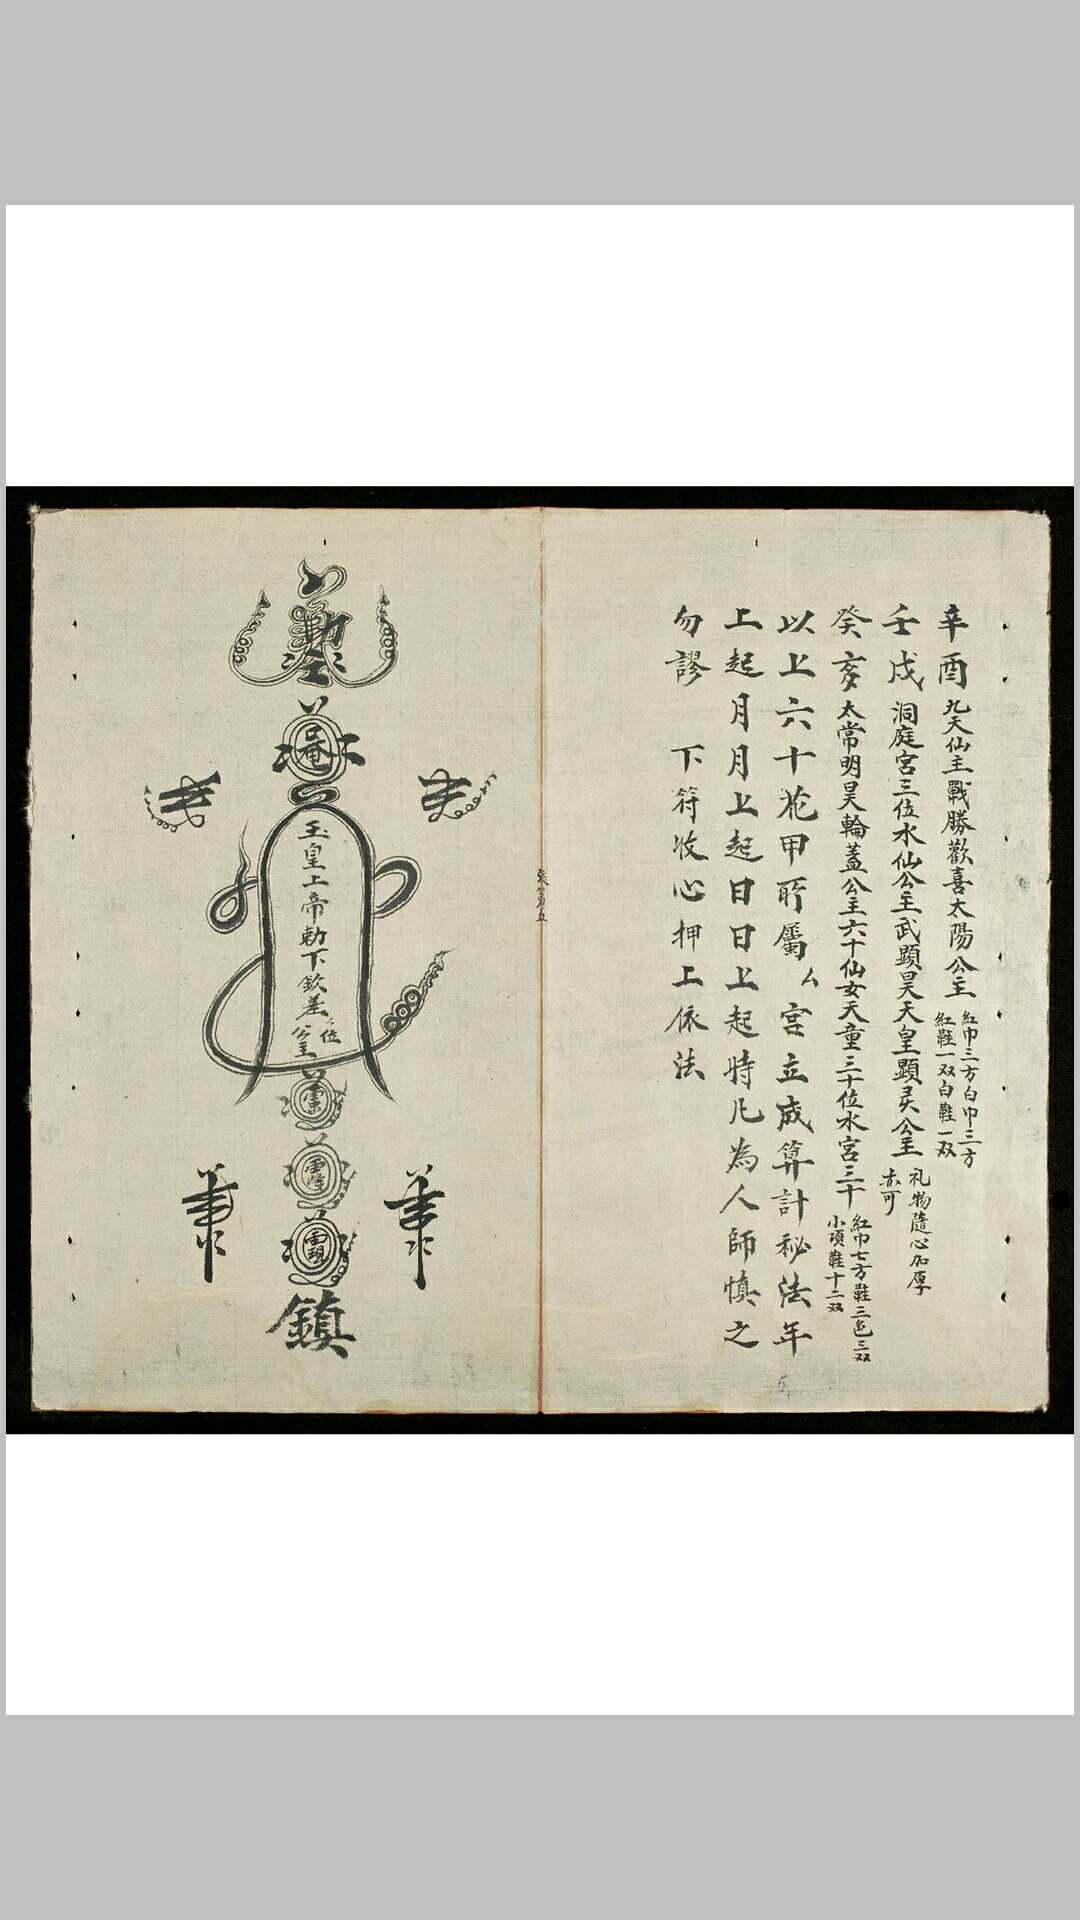 辛酉九天仙主戰勝歡喜太陽公主紅巾三方白巾三方
紅鞋一双白鞋一双
壬戌洞庭宮三位水仙公主武顕昊天皇顕灵公主礼物隨心加厚
亦可
癸亥太常明昊輪蓋公主六十仙女天童三十位水宮三十紅巾七方鞋三色三双
小項鞋十二双
以上六十花甲所屬厶宮立成算計秘法年
上起月月上起日日上起時凡為人師慎之
勿謬 下符收心押上依法
張第五
勅
唵
玉皇上帝勅下欽差厶位
公主
鎮
5